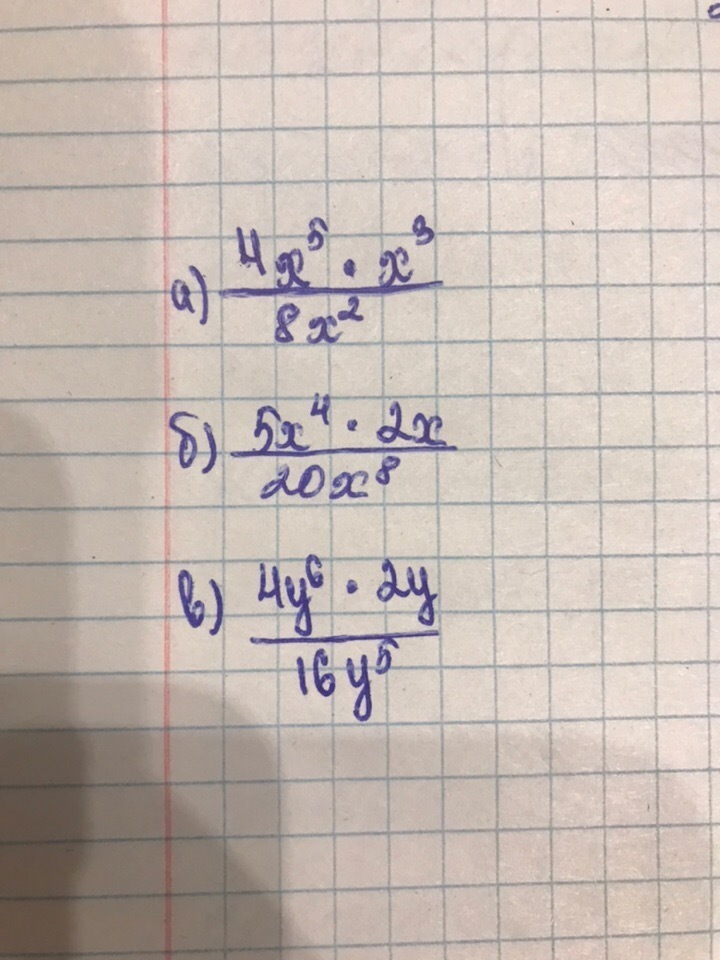 а) 4x⁵ · x³ / 8x²
б) 5x⁴ · 2x / 20x⁸
в) 4y⁶ · 2y / 16y⁵